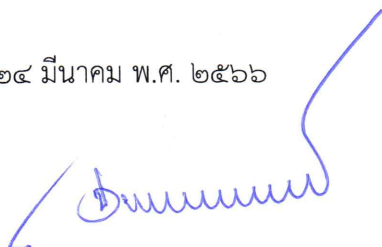 ๒๔ มีนาคม พ.ศ. ๒๕๖๖